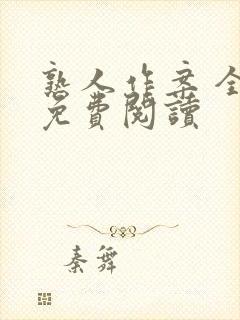 熟人作案全
免費閱讀
秦舞